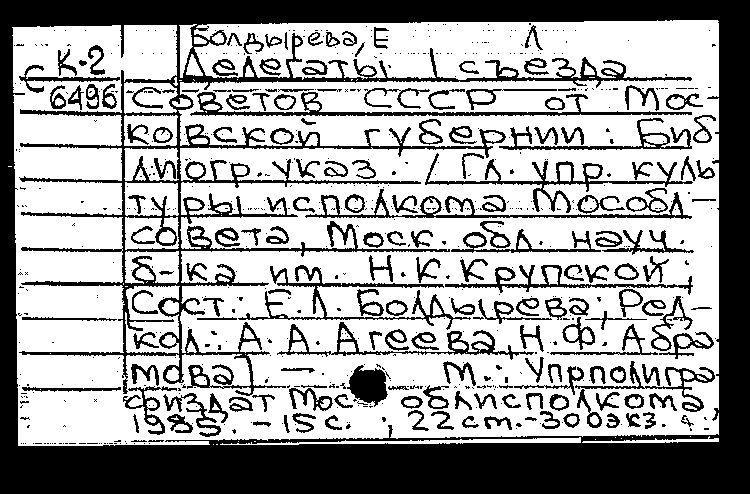 Болдырева, Е Л
К-2 Делегаты I съезда
С 6496 Советов СССР от Мос-
ковской губернии: Биб-
лиогр. указ. / Гл. упр. куль
туры исполкома Мособл-
совета, Моск. обл. науч.
б-ка им. Н.К.Крупской;
[Сост.: Е.Л.Болдырева; Ред-
кол.: А.А.Агеева, Н.Ф.Абра-
мова]. — М.: Упрполигра-
физдат Мос облисполкома,
1985. - 15 с. ; 22 см. - 300 экз.